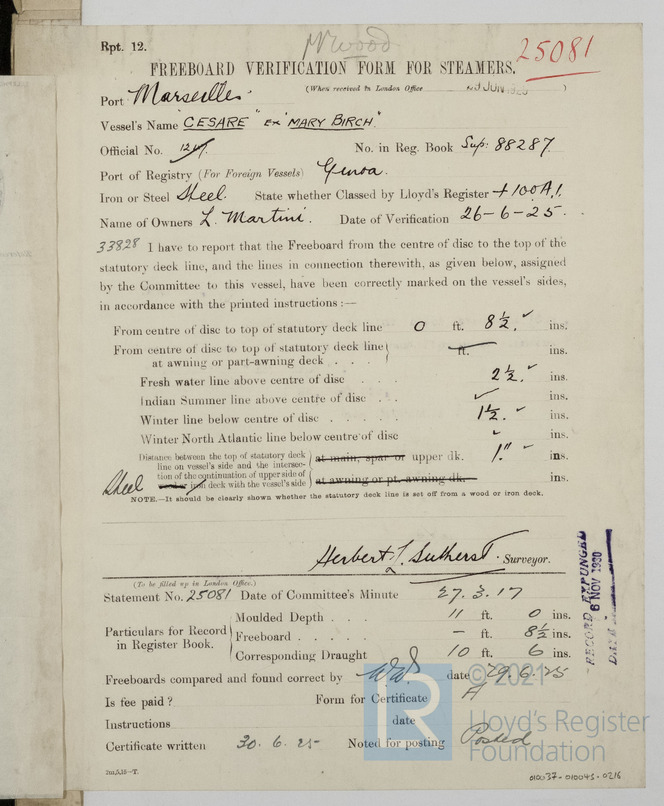 Rpt. 12.
25081
FREEBOARD VERIFICATION FORM FOR STEAMERS.
(When received in London Office JUN 1925 )
Port Marseilles.
Vessel's Name "CESARE" ex "MARY BIRCH"
Official No. No. in Reg. Book Sup: 88287
Port of Registry (For Foreign Vessels) Genoa.
Iron or Steel Steel. State whether Classed by Lloyd's Register +100A1.
Name of Owners L. Martini. Date of Verification 26-6-25.
33828 I have to report that the Freeboard from the centre of disc to the top of the
statutory deck line, and the lines in connection therewith, as given below, assigned
by the Committee to this vessel, have been correctly marked on the vessel's sides,
in accordance with the printed instructions :—
From centre of disc to top of statutory deck line 0 ft. 8½. ✓ ins.
From centre of disc to top of statutory deck line
at awning or part-awning deck . . . ft. ins.
Fresh water line above centre of disc . . . 2½. ✓ ins.
Indian Summer line above centre of disc . . ✓ ins.
Winter line below centre of disc . . . . . 1½. ✓ ins.
Winter North Atlantic line below centre of disc ✓ ins.
Distance between the top of statutory deck
line on vessel's side and the intersec-
tion of the continuation of upper side of
wood or iron deck with the vessel's side
at main, spar or upper dk. 1." ✓ ins.
at awning or pt. awning dk. ins.
Steel
NOTE.—It should be clearly shown whether the statutory deck line is set off from a wood or iron deck.
Herbert L. Sutherst. Surveyor.
(To be filled up in London Office.)
Statement No. 25081 Date of Committee's Minute 27.3.17
Particulars for Record
in Register Book.
Moulded Depth . . . 11 ft. 0 ins.
Freeboard . . . . – ft. 8½ ins.
Corresponding Draught 10 ft. 6 ins.
RECORD EXPUNGED
6 NOV 1930
Freeboards compared and found correct by date 29.6.25
Is fee paid? Form for Certificate A
Instructions date
Certificate written 30.6.25 Noted for posting Posted
2m,5,15—T.
© 2021
Lloyd's Register
Foundation
010037-010045-0216